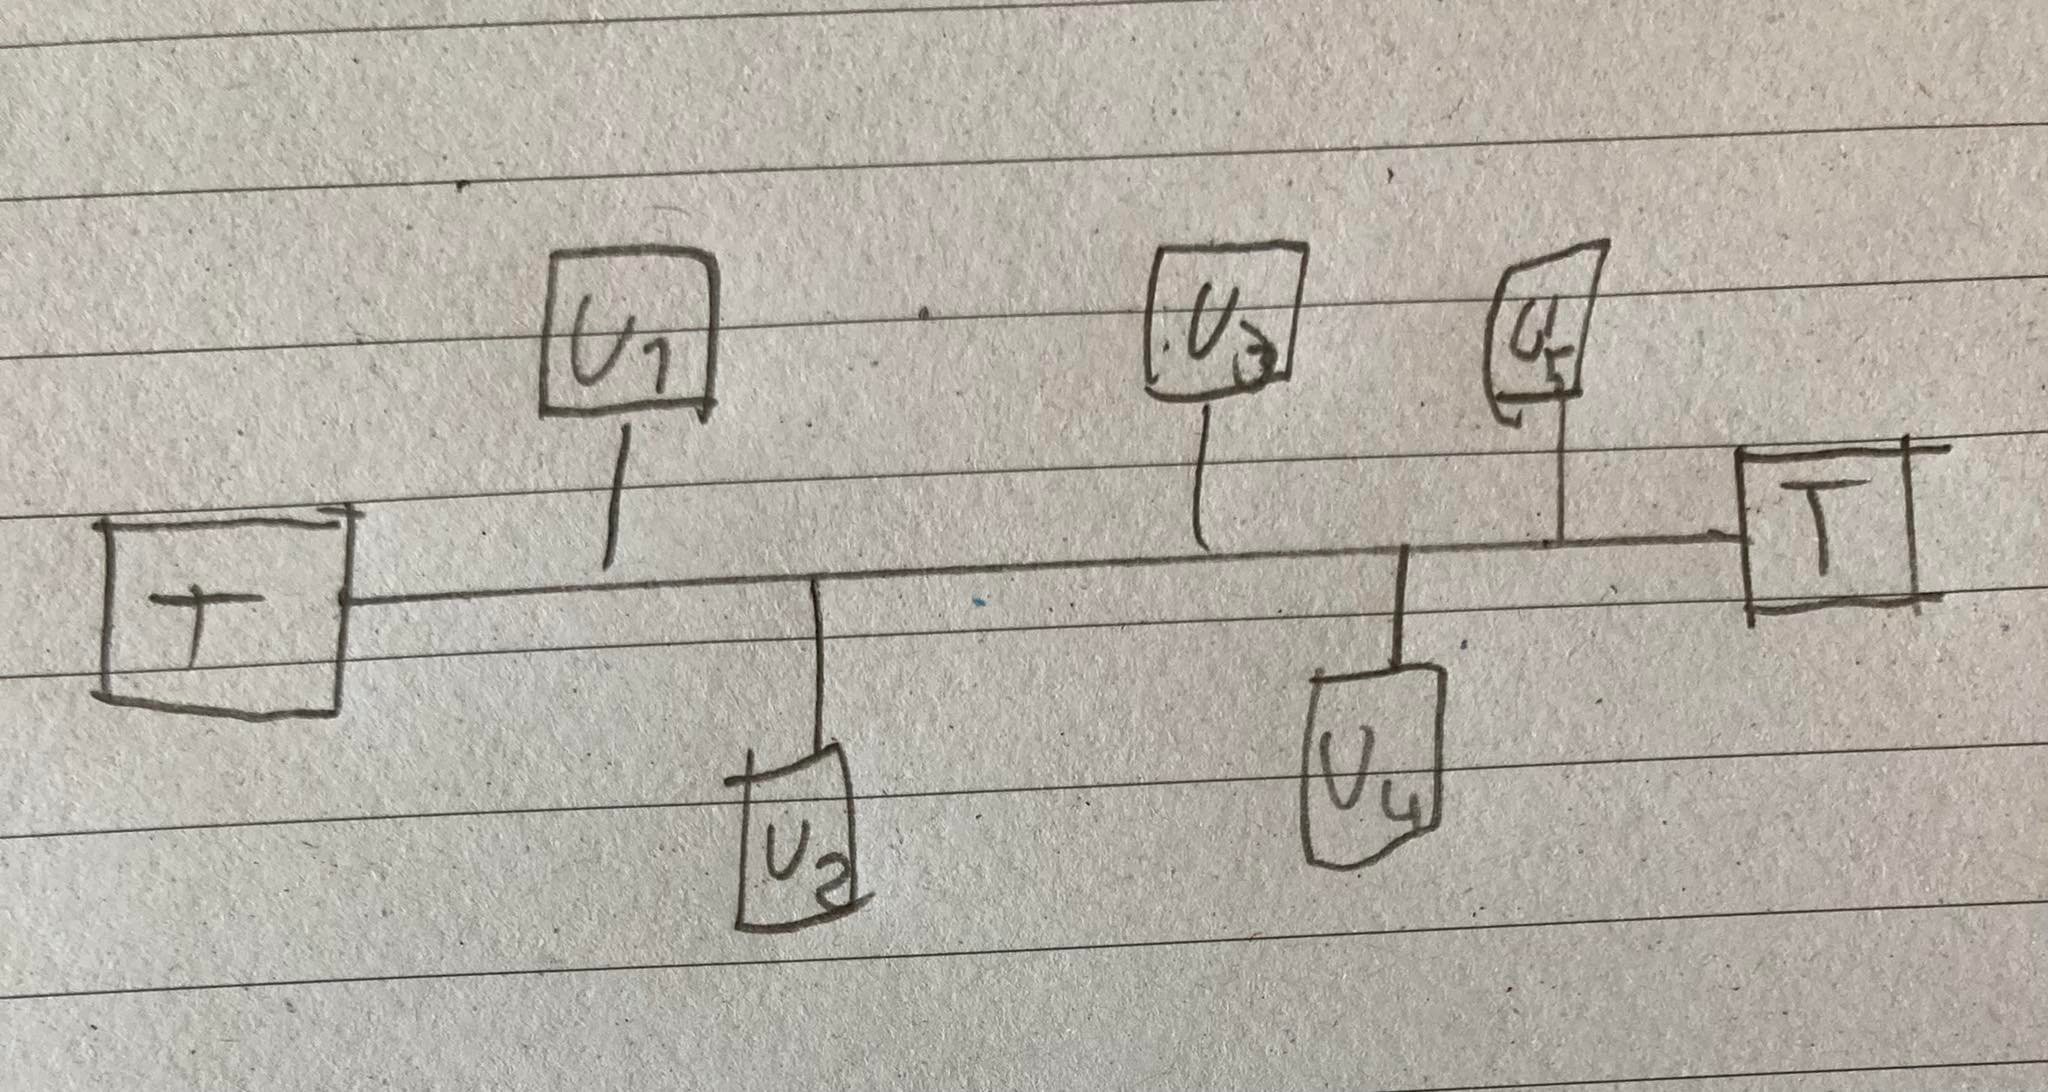 U1
U3
U5
T
T
U2
U4